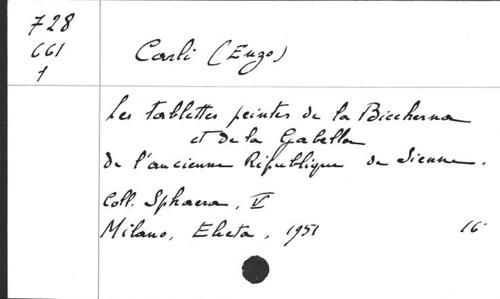 728
661
1
Carli (Enzo)
Les tablettes peintes de la Biccherna
et de la Gabella
de l'ancienne République de Sienne.
Coll. Sphaera, V
Milano, Electa, 1951 16°